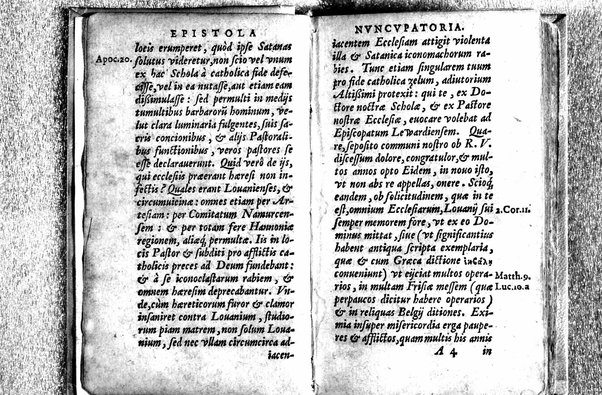 EPISTOLA
locis erumperet, quòd ipse Satanas
Apoc.20. solutus videretur, non scio vel vnum
ex hac Schola à catholica fide defe-
cisse, vel in ea nutasse, aut etiam eam
dissimulasse : sed permulti in medijs
tumultibus barbarorū hominum, ve-
lut clara luminaria fulgentes, suis sa-
cris concionibus, & alijs Pastorali-
bus functionibus, veros pastores se
esse declarauerunt. Quid verò de ijs,
qui ecclesiis praeerant haeresi non in-
fectis ? Quales erant Louanienses, &
circumuicina : omnes etiam per Ar-
tesiam : per Comitatum Namurcen-
sem : & per totam fere Hannoniæ
regionem, aliæq́, permultæ. Iis in lo-
cis Pastor & subditi pro afflictis ca-
tholicis preces ad Deum fundebant :
& à se iconoclastarum rabiem, &
omnem hæresim deprecabantur. Vn-
de, cùm hæreticorum furor & clamor
insaniret contra Louanium, studio-
rum piam matrem, non solum Loua-
nium, sed nec vllam circumcirca ad-
iacen-
NVNCVPATORIA.
iacentem Ecclesiam attigit violenta
illa & Satanica iconomachorum ra-
bies. Tunc etiam singularem tuum
pro fide catholica zelum, adiutorium
Altissimi protexit : qui te, ex Do-
ctore nostræ Scholæ, & ex Pastore
nostræ Ecclesiæ, euocare volebat ad
Episcopatum Lewardiensem. Qua-
re, seposito communi nostro ob R. V.
discessum dolore, congratulor, & mul-
tos annos opto Eidem, in nouo isto,
vt non abs re appellas, onere. Scioq́,
eandem, ob solicitudinem, quæ in te
est, omnium Ecclesiarum, Louanij sui 2.Cor.11.
semper memorem fore, vt ex eo Do-
minus mittat, siue (vt significantius
habent antiqua scripta exemplaria,
quæ & cum Græca dictione
conueniunt) vt eijciat multos opera- Matth.9.
rios, in multam Frisiæ messem (quæ Luc.10.a
perpaucos dicitur habere operarios )
& in reliquas Belgij ditiones. Exi-
mia insuper misericordia erga paupe-
res & afflictos, quam multis his annis
A 4 in